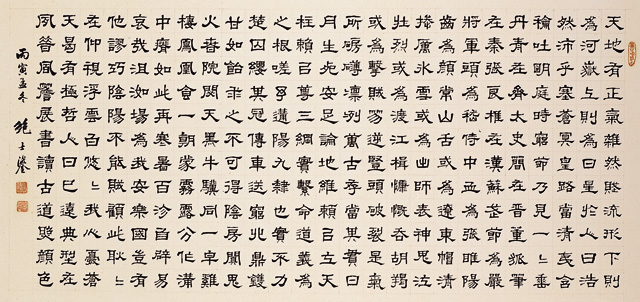 天地有正氣雜然賦流形下則
為河嶽上則為日星於人曰浩
然沛乎塞蒼冥皇路當清夷含
和吐明庭時窮節乃見一一垂
丹青在齊太史簡在晉董狐筆
在秦張良椎在漢蘇武節為嚴
將軍頭為嵇侍中血為張睢陽
齒為顏常山舌或為遼東帽清
操厲冰雪或為出師表鬼神泣
壯烈或為渡江楫慷慨吞胡羯
或為擊賊笏逆豎頭破裂是氣
所磅礡凜冽萬古存當其貫日
月生死安足論地維賴以立天
柱賴以尊三綱實繫命道義為
之根嗟予遘陽九隸也實不力
楚囚纓其冠傳車送窮北鼎鑊
甘如飴求之不可得陰房闃鬼
火春院閟天黑牛驥同一皁雞
棲鳳凰食一朝蒙霧露分作溝
中瘠如此再寒暑百沴自辟易
哀哉沮洳場為我安樂國豈有
他謬巧陰陽不能賊顧此耿〻
在仰視浮雲白悠〻我心憂蒼
天曷有極哲人日已遠典型在
夙昔風簷展書讀古道照顏色
丙寅孟冬 鮑士